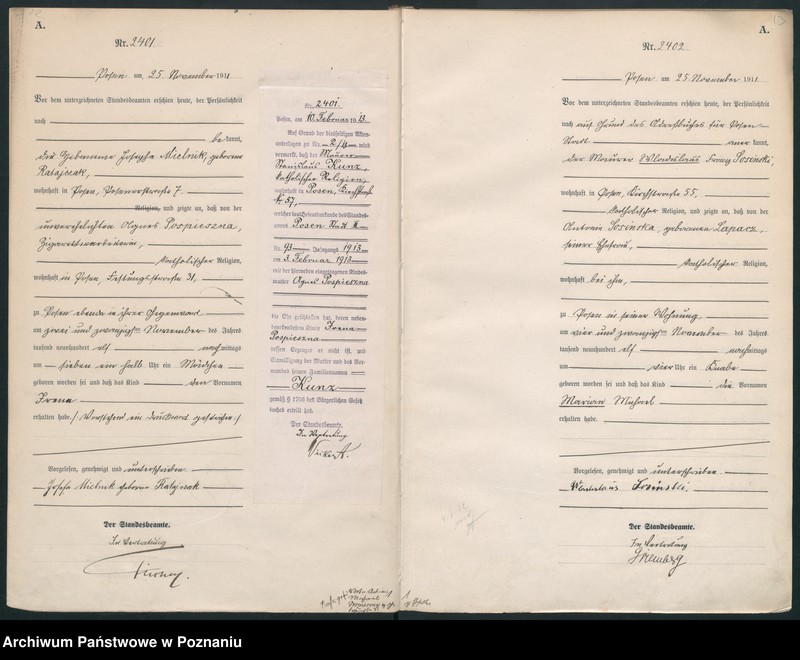 A.
Nr. 2401
Posen am 25. November 1911
Vor dem unterzeichneten Standesbeamten erschien heute, der Persönlichkeit
nach
be kannt,
die Hebamme Josepha Mielnik, geborene
Ratajczak,
wohnhaft in Posen, 7
Religion, und zeigte an, daß von der
unverehelichten Agnes Pospieszna,
Zigarettenarbeiterin,
katholischer Religion,
wohnhaft in Posen, 31,
zu Posen ebenda in ihrer Gegenwart
am zwei und zwanzigsten November des Jahres
tausend neunhundert elf nachmittags
um sieben ein halb Uhr ein Mädchen
geboren worden sei und daß das Kind den Vornamen
Irena
erhalten habe. / Vorstehend ein Druckwort gestrichen /
Vorgelesen, genehmigt und unterschrieben
Josefa Mielnik geborene Ratajczak
Der Standesbeamte.
In Vertretung
Nr. 2401.
Posen, am 10. Februar 1913.
Auf Grund der diesseitigen Akten-
wird
vermerkt, daß der Maurer
Stanislaus Kunz,
katholischer Religion,
wohnhaft in Posen,
No 57,
Posen
Nr. 93 Jahrgangs 1913
am 3. Februar 1913
mit der hierneben eingetragenen Kindes-
mutter Agnes Pospieszna
die Ehe geschlossen hat, deren neben-
Irena
Pospieszna
dessen Erzeuger er nicht ist, mit
Einwilligung der Mutter und des Vor-
mundes seinen Familiennamen
Kunz
gemäß § 1706 des Bürgerlichen Gesetz
buches erteilt hat.
Der Standesbeamte.
In Vertretung
A.
Nr. 2402
Posen am 25. November 1911
Vor dem unterzeichneten Standesbeamten erschien heute, der Persönlichkeit
nach auf Grund des Adreßbuches für Posen-
Stadt aner kannt,
der Maurer Wladislaus Franz Sosinski,
wohnhaft in Posen, 55,
katholischer Religion, und zeigte an, daß von der
Antonie Sosinska, geborenen Laparz,
seiner Ehefrau,
katholischer Religion,
wohnhaft bei ihm,
zu Posen in seiner Wohnung
am vier und zwanzigsten November des Jahres
tausend neunhundert elf nachmittags
um vier Uhr ein Knabe
geboren worden sei und daß das Kind die Vornamen
Marian Michael
erhalten habe.
Vorgelesen, genehmigt und unterschrieben
Wladislaus Sosinski.
Der Standesbeamte.
In Vertretung
Archiwum Państwowe w Poznaniu